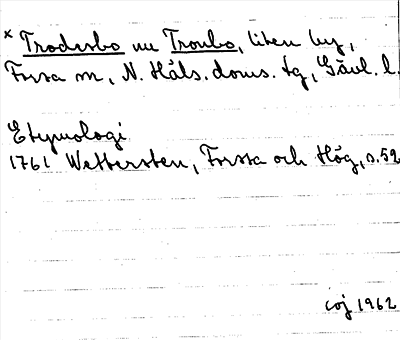 × Trodesbo nu Tronbo, liten by,
Forsa sn, N. Häls. doms. tg, Gävl. l.
Etymologi
1761 Wettersten, Forssa och Hög, s. 52
coj 1962